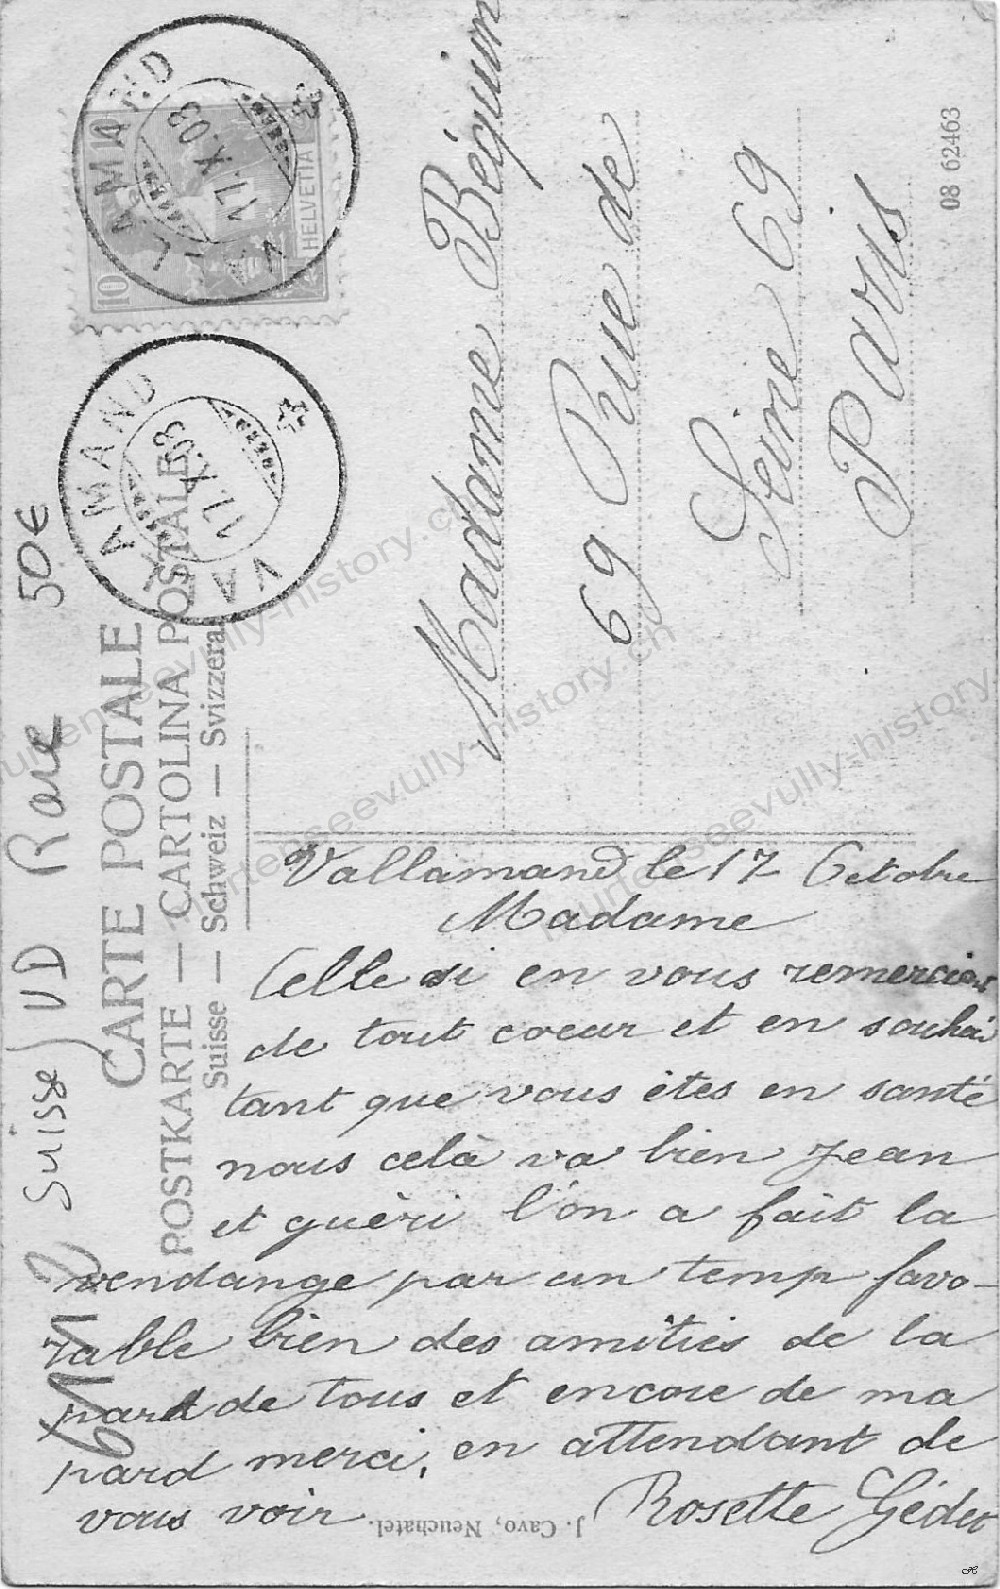 Suisse VD Rare 50€
CARTE POSTALE
POSTKARTE — CARTOLINA POSTALE
Suisse — Schweiz — Svizzera
10
HELVETIA
VALLAMAND
17.X.08
VALLAMAND
17.X.08
Madame Béguin
69 Rue de
Seine 69
Paris
08 62463
Vallamand le 17 Octobre
Madame
Celle si en vous remerciant
de tout coeur et en souhai
tant que vous êtes en santé
nous celà va bien Jean
et guèri l'on a fait la
vendange par un temp favo-
rable bien des amitiés de la
pard de tous et encore de ma
pard merci, en attendant de
vous voir. Rosette
J. Cavo, Neuchatel.
murtenseevully-history.ch
murtenseevully-history.ch
murtenseevully-history.ch